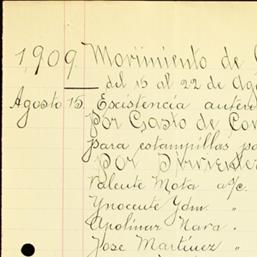 1909 Movimiento de
del 15 al 22 de Ag
Agosto 15. Escistencia anter
por Gasto de Con
para estampillas pa
POR
Valente Mota a/c
Ynocente Ydm "
Apolinar Nava "
Jose Martinez "